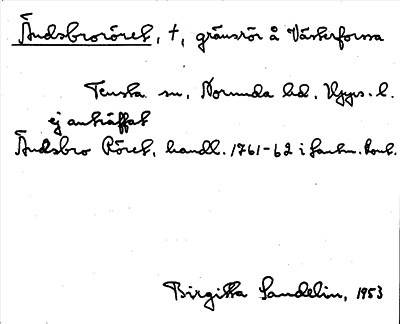 Åndsbroröret, †, gränsrör å Västerforssa
Tensta sn, Norunda hd. Upps. l.
ej anträffat
Åndsbro Röret, handl. 1761-62 i Lantm. kont.
Birgitta Sandelin, 1953